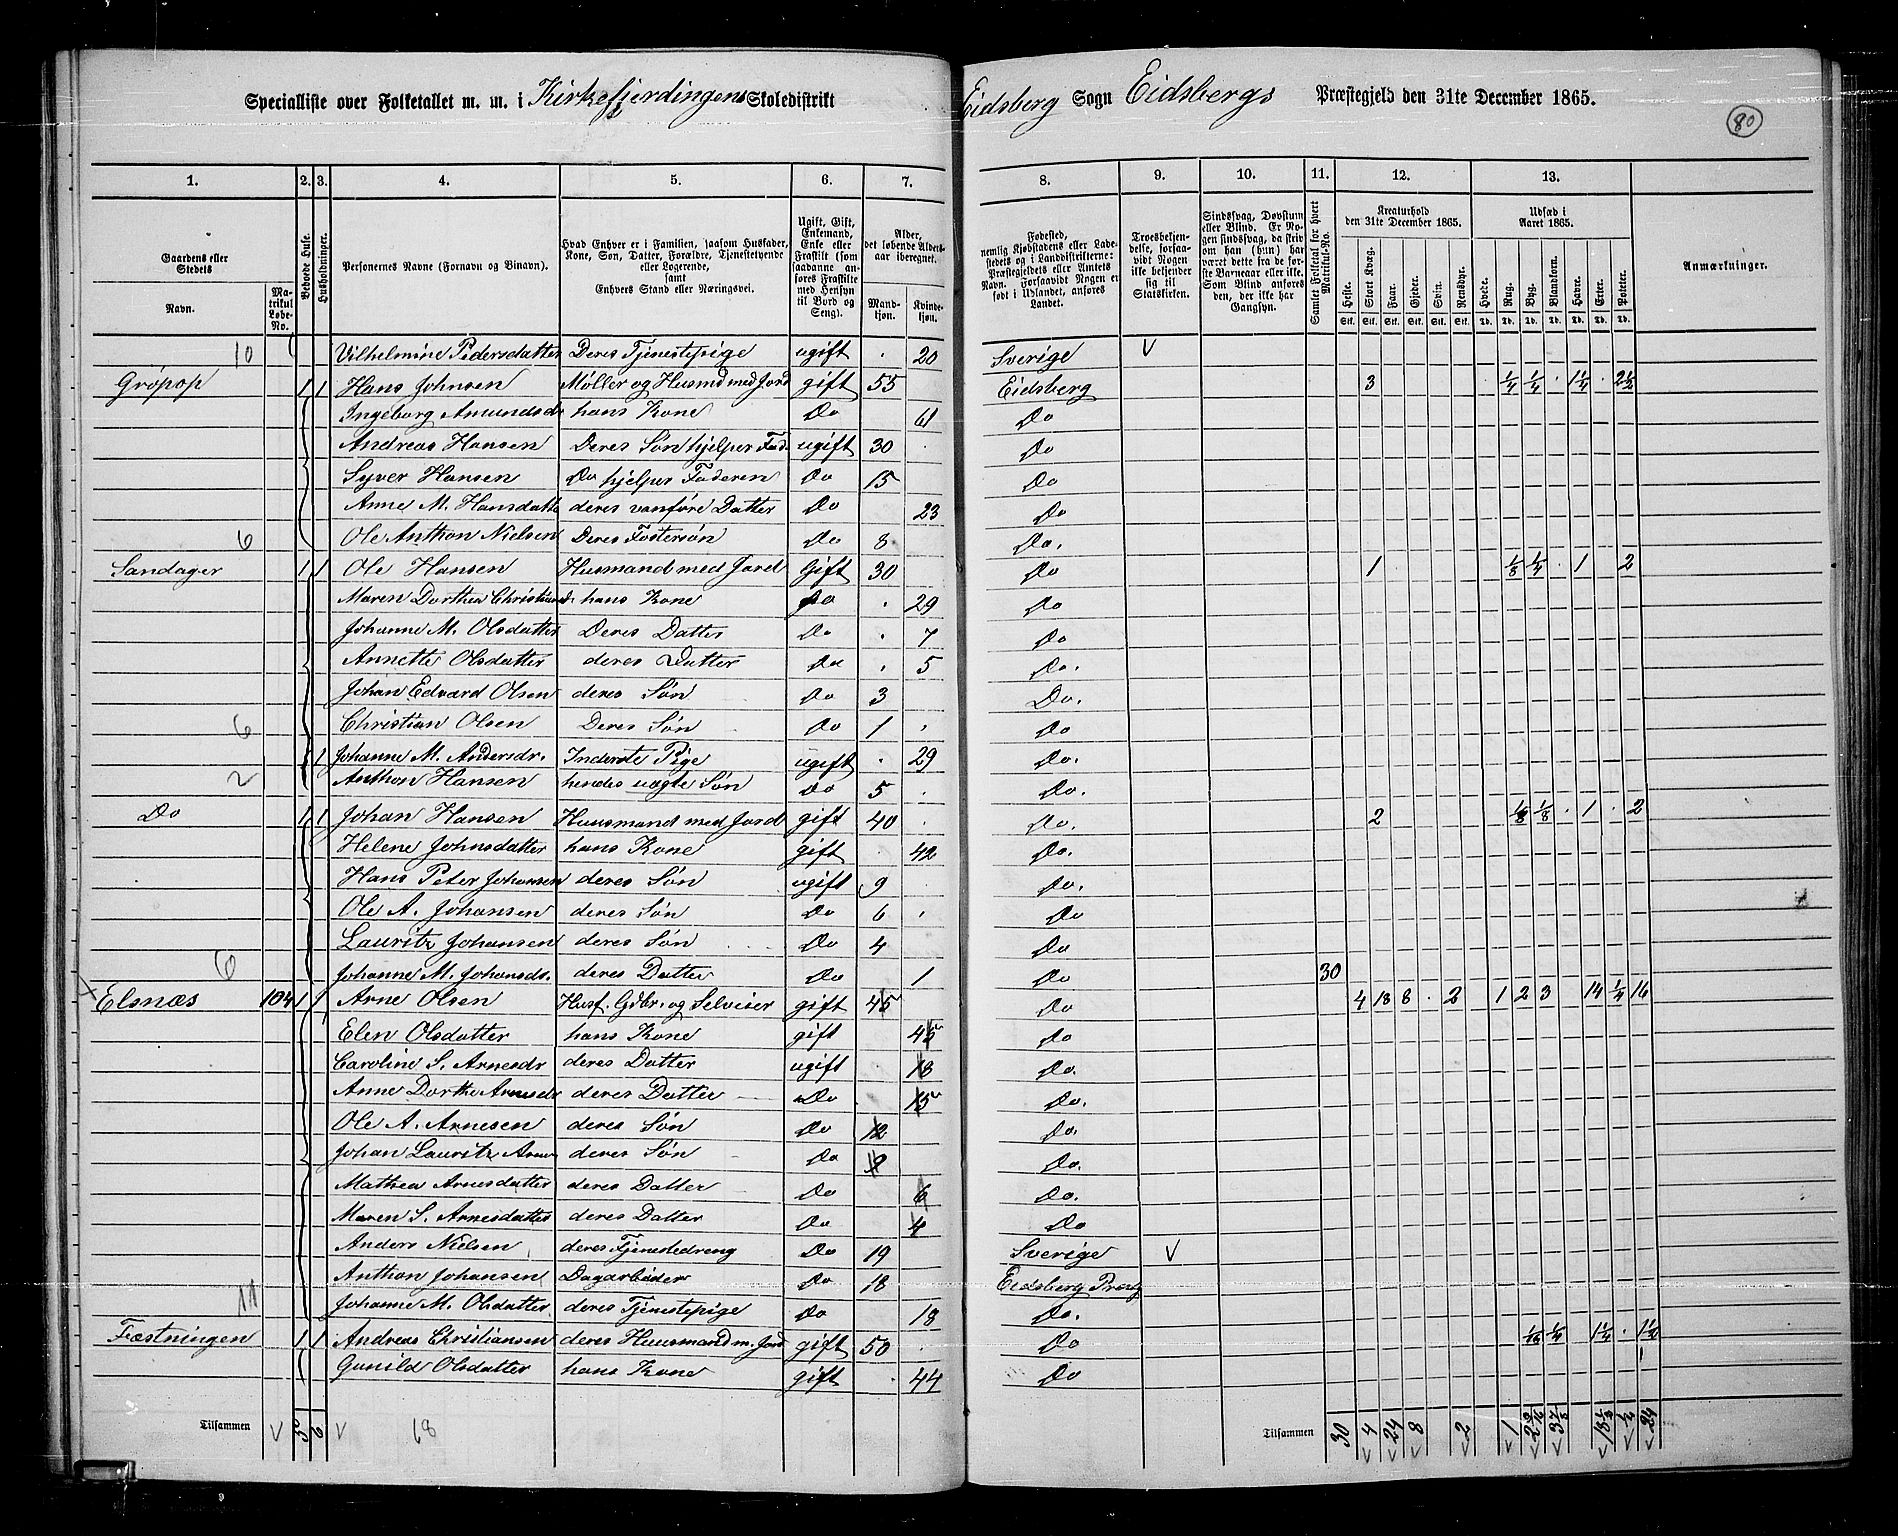 Specialliste over Folketallet m. m. i Kirkefjerdingens Skoledistrikt Eidsberg Sogn Eidsbergs Præstegjeld den 31te December 1865.
80
1. 2. 3. 4. 5. 6. 7. 8. 9. 10. 11. 12. 13.
Gaardens eller Stedets
Navn.
Matrikul Løbe-No.
Beboede Huse.
Husholdninger.
Personernes Navne (Fornavn og Binavn).
Hvad Enhver er i Familien, saasom Husfader, Kone, Søn, Datter, Forældre, Tjenestetyende eller Logerende, samt Enhvers Stand eller Næringsvei.
Ugift, Gift, Enkemand, Enke eller Fraskilt (som saadanne anføres Fraskilte med Hensyn til Bord og Seng).
Alder, det løbende Aldersaar iberegnet.
Mandkjøn.
Kvindekjøn.
Fødested, nemlig Kjøbstadens eller Ladestedets og i Landdistrikterne: Præstegjeldets eller Amtets Navn. Forsaavidt Nogen er født i Udlandet, anføres Landet.
Troesbekjendelse, forsaavidt Nogen ikke bekjender sig til Statskirken.
Sindssvag, Døvstum eller Blind. Er Nogen sindssvag, da skriv om han (hun) har været dette fra de første Barneaar eller ikke. Som Blind anføres den, der ikke har Gangsyn.
Samlet Folketal for hvert Matrikul-No.
Kreaturhold den 31te December 1865.
Heste. Stort Kvæg. Faar. Gjeder. Svin. Rensdyr.
Stk. Stk. Stk. Stk. Stk. Stk.
Udsæd i Aaret 1865.
Hvede. Rug. Byg. Blandkorn. Havre. Erter. Poteter.
Td. Td. Td. Td. Td. Td. Td.
Anmærkninger.
10 Vilhelmine Pedersdatter Deres Tjenestepige ugift . 20 Sverige V
Grøpop 1 1 Hans Johnsen Møller og Husmd med Jord gift 55 Eidsberg 3 1/4 1/4 . 1 1/4 . 2 1/2
Ingeborg Amundsdr hans Kone Do 61 Do
Andreas Hansen Deres Søn hjelper Fad. ugift 30 . Do
Syver Hansen Do hjelper Faderen Do 15 Do
Anne M. Hansdatte deres vanføre Datter Do 23 Do
6 Ole Anthon Nielsen Deres Fostersøn Do 8 Do.
Sandager 1 1 Ole Hansen Husmand med Jord Gift 30 Do 1 1/8 1/4 . 1 . 2
Maren Dorthea Christiansd. hans Kone Do . 29 Do
Johanne M. Olsdatter Deres Datter Do . 7 Do
Annette Olsdatter deres Datter Do . 5 Do.
Johan Edvard Olsen deres Søn Do 3 Do.
6 Christian Olsen Deres Søn Do 1 . Do
1 Johanne M. Andersdr. Inderste Pige ugift . 29 Do.
2 Anthon Hansen hendes uægte Søn Do 5 . Do.
Do 1 1 Johan Hansen Huusmand med Jord gift 40 . Do. 2 1/8 1/8 . 1 . 2
Helene Johnsdatter hans Kone gift . 42 Do.
Hans Peter Johansen deres Søn ugift 9 . Do.
Ole A. Johansen deres Søn Do 6 . Do
Lauritz Johansen deres Søn Do 4 Do
6 Johanne M. Johansdt. deres Datter Do 1 Do 30
Elsnæs 104 1 1 Arne Olsen Husf. Gdbr. og Selveier gift 45 Do 4 18 8 . 2 1 2 3 14 1/4 16
Elen Olsdatter hans Kone gift 45 Do
Caroline S. Arnesdr deres Datter ugift 18 Do.
Anne Dorthe Arnesdr deres Datter Do 15 Do.
Ole A. Arnesen deres Søn Do 12 Do.
Johan Lauritz Arnes deres Søn Do 9 Do.
Mathea Arnesdatter deres Datter Do 6 Do.
Maren S. Arnesdatter deres Datter Do 4 Do
Anders Nielsen deres Tjenestedreng Do 19 Sverige V
Anthon Johansen Dagarbeider Do 18 Eidsberg Præstg
11 Johanne M. Olsdatter deres Tjenestepige Do 18 Do.
Fæstningen 1 1 Andreas Christiansen deres Huusmand m. Jord gift 50 . Do 1/16 1/4 1 1/4 . 1 1/2
Gunild Olsdatter hans Kone gift . 44 Do
Tilsammen V 5 6 V 68
Tilsammen 30 4 24 8 2 1 24